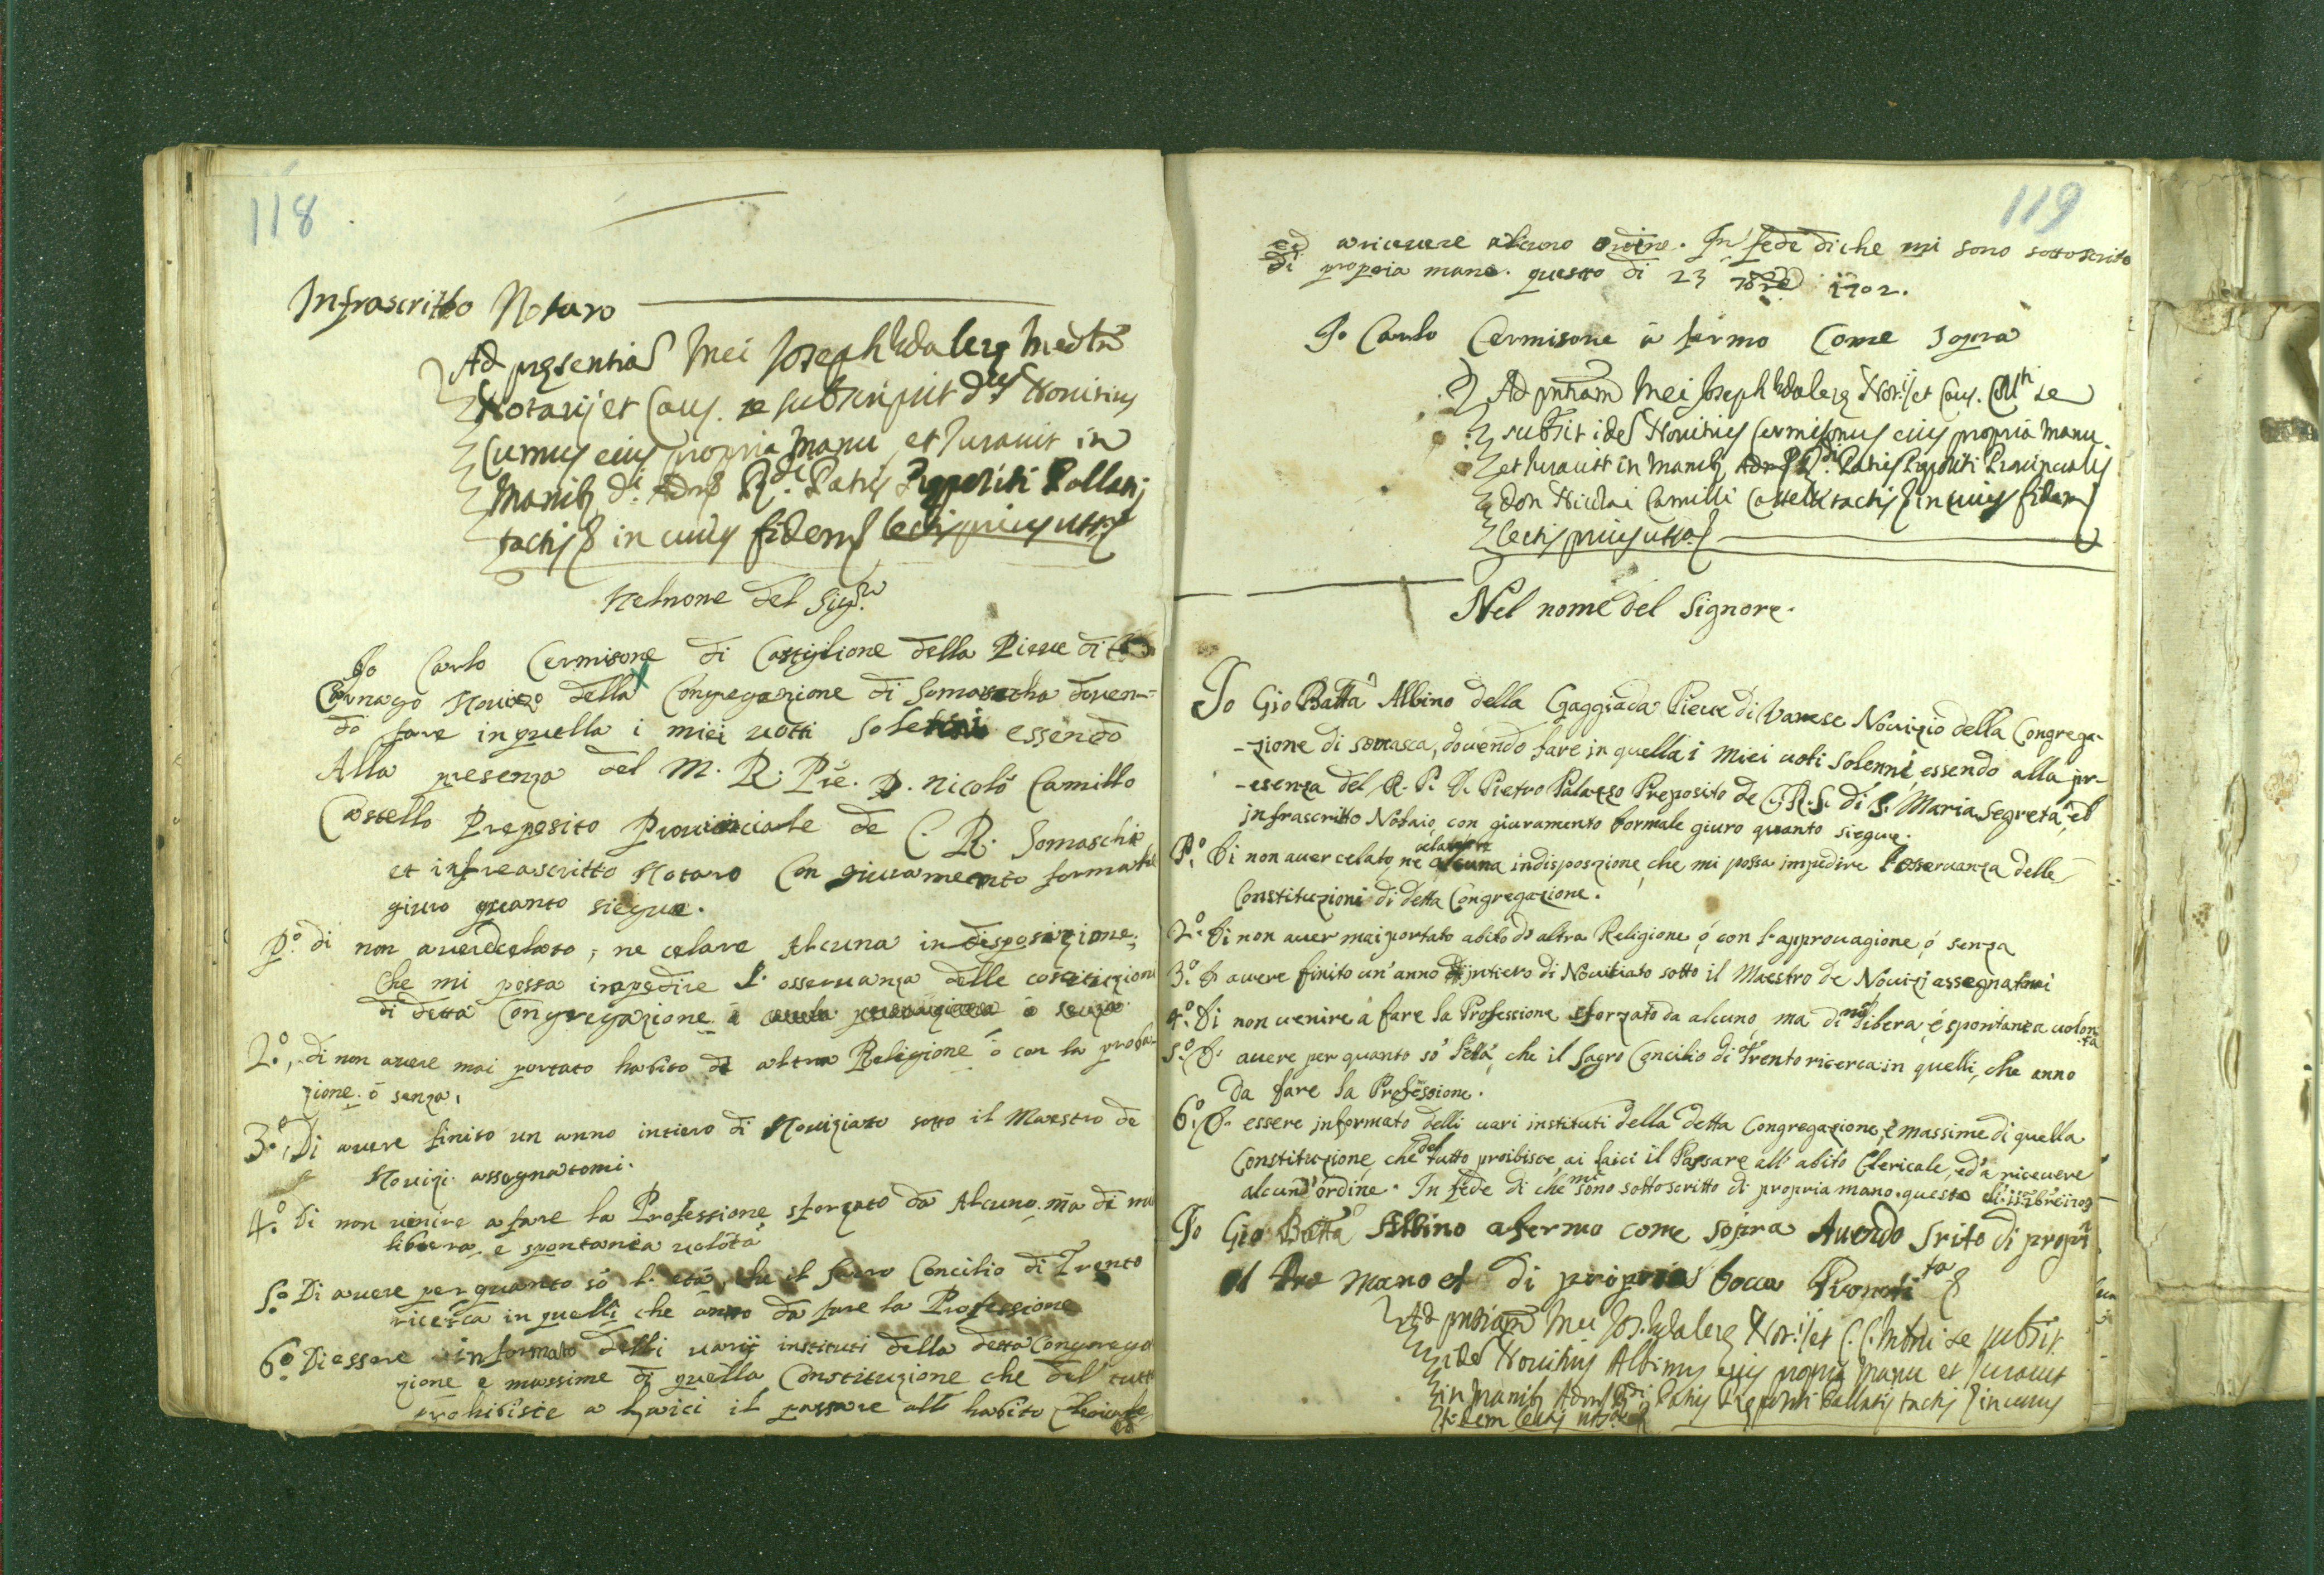 118
Infrascritto Notaro
Ad presentia Mei Joseph
Notarij et Caus. se subscripsit Novitius
Cumus eius propria manu et Juravit in
Manib. Patris
tactis in cuius fidem lectis prius
Nel nome del Sig.re
Io Carlo Cermisone di Castiglione della Pieve di
Carnago Novizo della Congregazione di Somascha doven-
do fare in quella i miei votti Solenni essendo
Alla presenza del M. R. Pre. D. Nicolò Camillo
Castello Preposito Provinciale de C. R. Somaschi
et infreascritto Notaro Con giuramento formale
giuro quanto siegue.
P.o di non avere celato, ne celare Alcuna indisposizione,
Che mi possa impedire l'osservanza delle costituzioni
di detta Congregazione
2.o, di non avere mai portato habito di altra Religione ò con la proba-
zione ò senza,
3.o, Di avere finito un anno intiero di Noviziato sotto il Maestro de
Novizi assegnatomi.
4.o Di non venire a fare la Professione sforzato da Alcuno, ma di mia
libera e spontania volōtà
5.o Di avere per quanto sò l'età, che il sacro Concilio di Trento
ricerca in quelli che anno da fare la Professione
6.o Di essere informato delli varij instituti della detta Congrega
zione e massime di quella Constituzione che del tutto
prohibisce a Laici il passare all habito Clericale
119
ed a ricevere alcuno ordine. In fede di che mi sono sottoscrito
di propria mano. questo di 23 7bre 1702.
Io Carlo Cermisone à fermo Come sopra
Ad pntiam Mei Joseph Not. et Caus. se
subsit idem Novitius Cermisonus eius propria manu
et Juravit in Manib. Patris Prepositi Provincialis
don Nicolai Camilli Castelli tactis in cuius fidem
lectis prius
Nel nome del Signore.
Io Gio Batta Albino della Gaggiada Pieve di Varese Novizio della Congrega-
-zione di somasca, dovendo fare in quella i Miei voti Solenni, essendo alla pr-
-esenza del R. P. D. Pietro Palazzo Preposito de C. R. S. di S. Maria Segreta, ed
infrascritto Notaio, con giuramento formale giuro quanto siegue.
P.o Di non aver celato, ne celare alcuna indisposizione, che mi possa impedire l'oservanza delle
Constituzioni di detta Congregazione.
2.o Di non aver mai portato abito di altra Religione ó con l'approvagione, ó senza
3.o D'avere finito un'anno intiero di Novitiato sotto il Maestro de Novizi assegnatomi
4.o Di non venire à fare la Professione sforzato da alcuno, ma di mia libera, é spontanea volon-
tà
5.o D'avere per quanto sò l'età, che il Sagro Concilio di Trento ricerca in quelli, che anno
da fare la Professione.
6.o D'essere informato delli vari instituti della detta Congregazione, é massime di quella
Constituzione, che del tutto proibisce ai laici il Passare all'abito Clericale, ed'à ricevere
alcund'ordine. In fede di che mi sono sottoscritto di propria mano. questo di
Io Gio Batta Albino afermo come sopra Avendo Srito di propri
mano et di propria bocca
Ad pntiam Mei Not. et se subsit
idem Novitius Albinus eius propria manu et Juravit
in manib. Patris tactis in cuius
fidem lectis